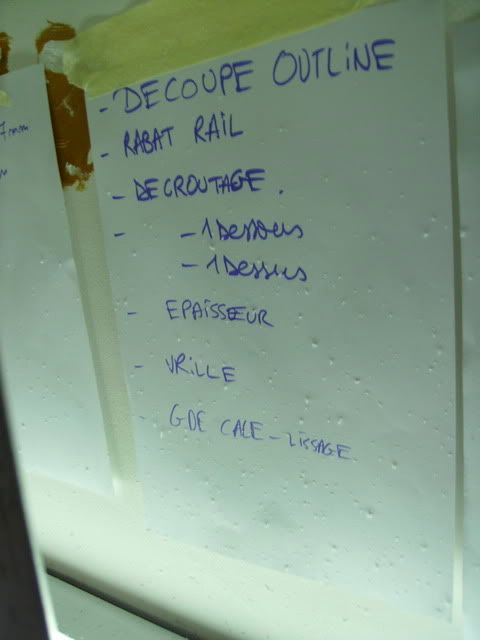 7mm
m
- DECOUPE OUTLINE
- RABAT RAIL
- DECROUTAGE.
- - 1 Dessous
- 1 Dessus
- EPAISSEUR
- VRILLE
- GDE CALE - LISSAGE